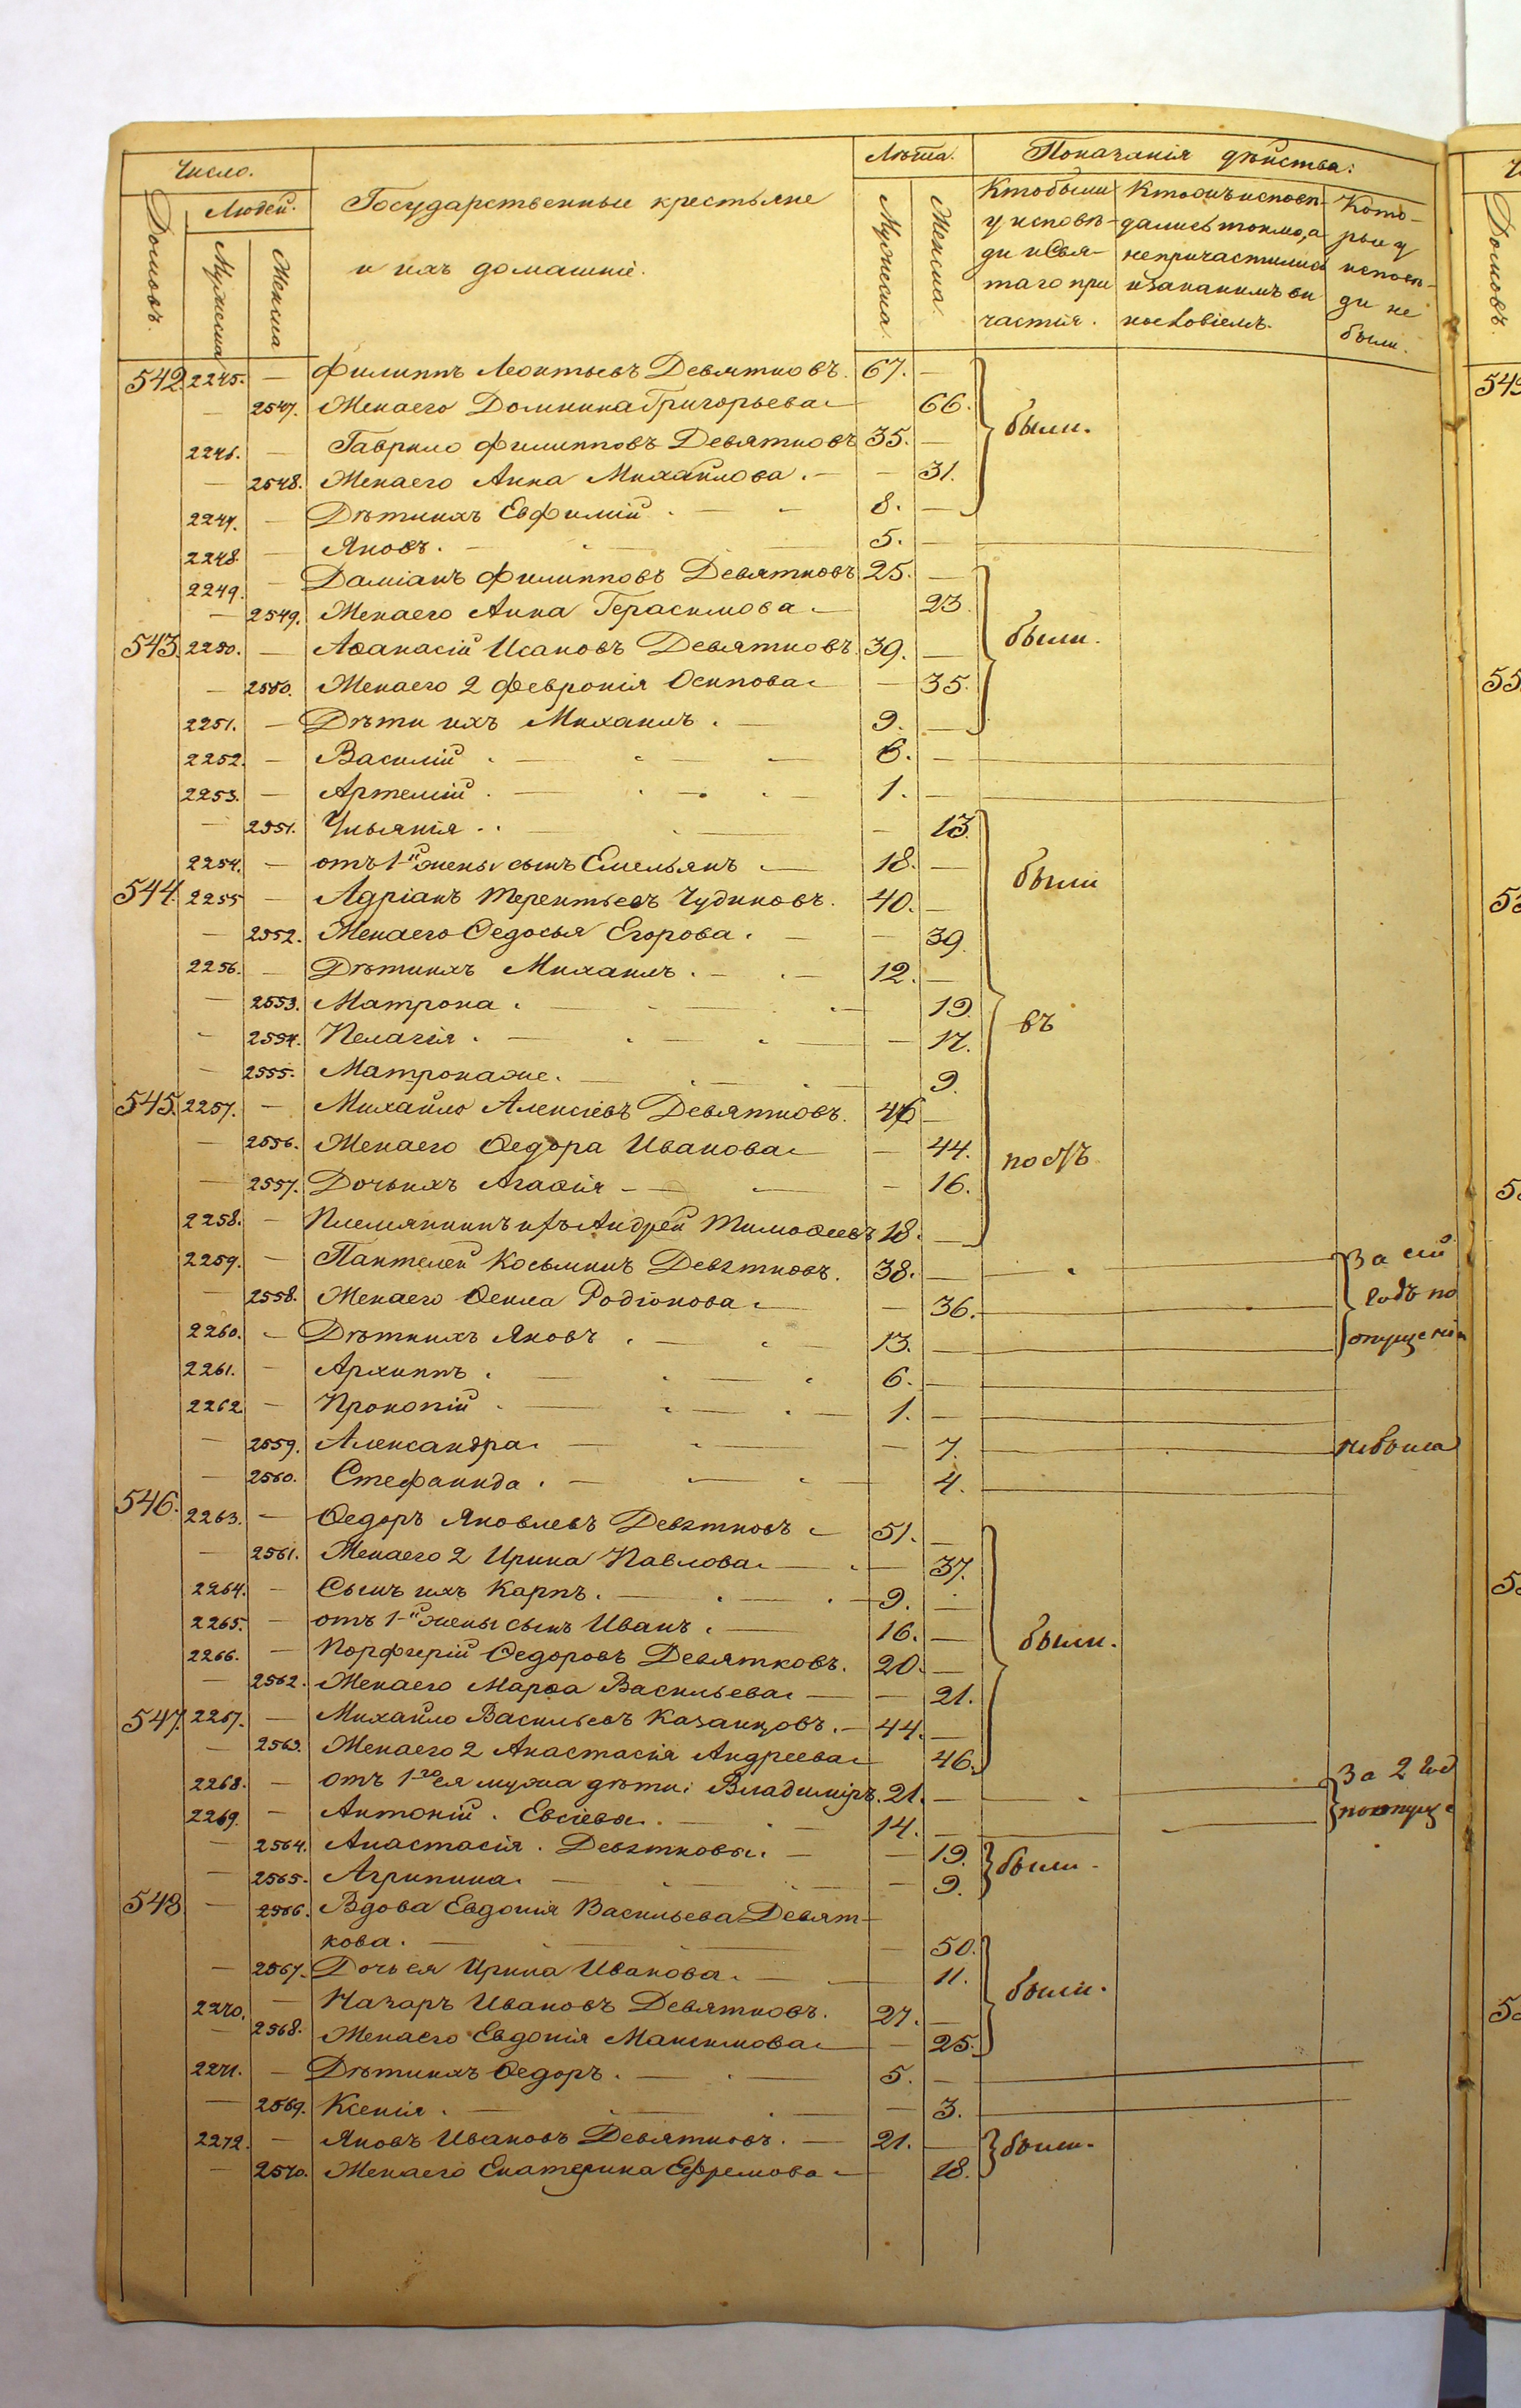 Число. Лѣта. Показанія дѣйства:
Домовъ. Людей. Мужеска Женска
Государственные крестьяне
и ихъ домашніе.
Мужеска. Женска.
Кто были у исповѣди и Святаго причастія.
Кто онъ исповѣдались токмо, а непричастились и заканимъ виннословіемъ.
Которые у исповѣди не были.
542 2245. — Филиппъ Леонтьевъ Девятковъ. 67. —
— 2547. Жена его Домникиа Григорьева — 66.
2246. — Гаврило Филипповъ Девятковъ 35. — были.
— 2548. Жена его Анна Михайлова. — — 31.
2247. — Дѣти ихъ Евфимій. — — 8. —
2248. — Яковъ. — 5. —
2249. — Даміанъ Филипповъ Девятковъ 25. —
— 2549. Жена его Анна Герасимова — 23.
543. 2250. — Аѳанасій Исаковъ Девятковъ. 39. — были.
— 2550. Жена его 2 Февронія Осипова — 35.
2251. — Дѣти ихъ Михаилъ. — 9. —
2252. — Василій. — 6. —
2253. — Артемій. — 1. —
— 2551. Ульянія. — — 13.
2254. — отъ 1-й жены сынъ Емельянъ — 18. —
544. 2255 — Адріанъ Терентьевъ Чудиновъ. 40. — были
— 2552. Жена его Ѳедосья Егорова. — — 39.
2256. — Дѣти ихъ Михаилъ. — 12. —
— 2553. Матрона. — 19.
— 2554. Пелагія. — — 17. въ
— 2555. Матрона же. — 9.
545. 2257. — Михайло Алексіевъ Девятковъ. 46 —
— 2556. Жена его Ѳедора Иванова — — 44.
— 2557. Дочь ихъ Агаѳія — — 16. постъ
2258. — Племянникъ ихъ Андрей Тимоѳеевъ 18. —
2259. — Пантелей Косьминъ Девятковъ. 38. — За сій
— 2558. Жена его Ѳекла Родіонова — — 36. годъ по
2260. — Дѣти ихъ Яковъ. — 13. — опущенію
2261. — Архиппъ. — 6. —
2262 — Прокопій. — 1. —
— 2559. Александра. — — 7. не были
— 2560. Стефанида. — 4.
546. 2263. — Ѳедоръ Яковлевъ Девятковъ — 51. —
— 2561. Жена его 2 Ирина Павлова. — — 37.
2264. — Сынъ ихъ Карпъ. — 9. —
2265. — отъ 1-й жены сынъ Иванъ. — 16. —
2266. — Порфирій Ѳедоровъ Девятковъ. 20. — были.
— 2562. Жена его Марѳа Васильева. — — 21.
547. 2267. — Михайло Васильевъ Казанцовъ. — 44. —
— 2563. Жена его 2 Анастасія Андреева — 46.
2268. — отъ 1-го ея мужа дѣти: Владиміръ. 21. — За 2 год
2269. — Антоній. Евсіевы. — 14. — по опуще
— 2564. Анастасія. Девятковы. — — 19.
— 2565. Агрипина. — — 9. были.
548 — 2566. Вдова Евдокія Васильева Девят-
кова. — — 50.
— 2567. Дочь ея Ирина Иванова. — 11.
2270. — Назаръ Ивановъ Девятковъ. 27. — были.
— 2568. Жена его Евдокія Максимова — — 25.
2271. — Дѣти ихъ Ѳедоръ. — 5. —
— 2569. Ксенія. — — 3.
2272. — Яковъ Ивановъ Девятковъ. — 21. — были.
— 2570. Жена его Екатерина Ефремова — 18.